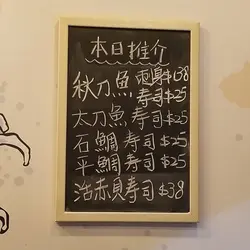 本日推介
秋刀魚刺身$138
壽司$25
太刀魚壽司$25
石鯛壽司$25
平鯛壽司$25
活赤貝壽司$38